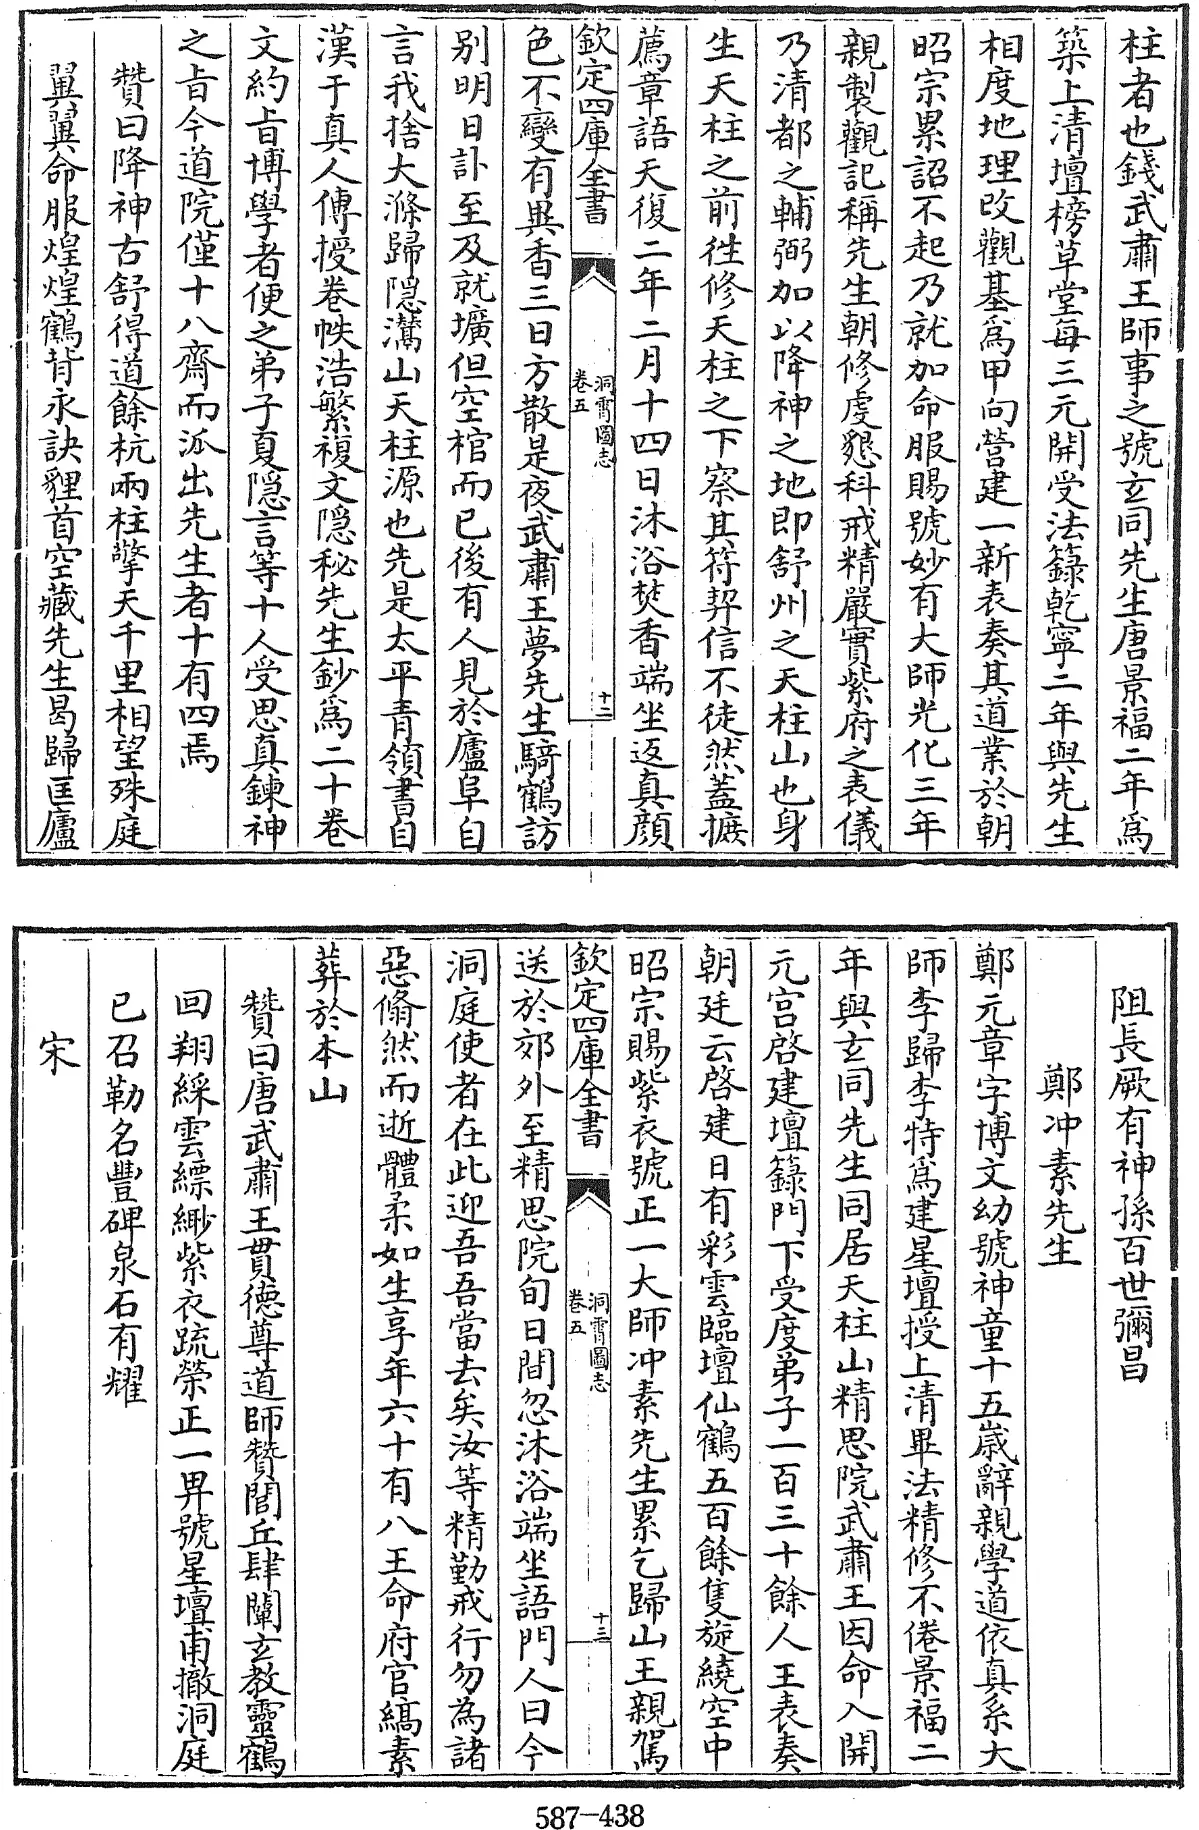 柱者也錢武肅王師事之號玄同先生唐景福二年爲
築上清壇榜草堂每三元開受法籙乾寧二年與先生
相度地理改觀基爲甲向營建一新表奏其道業於朝
昭宗累詔不起乃就加命服賜號妙有大師光化三年
親製觀記稱先生朝修虔懇科戒精嚴實紫府之表儀
乃清都之輔弼加以降神之地即舒州之天柱山也身
生天柱之前徃修天柱之下察其符契信不徒然蓋摭
薦章語天復二年二月十四日沐浴焚香端坐返真顔
欽定四庫全書
洞霄圖志
卷五
十二
色不變有異香三日方散是夜武肅王夢先生騎鶴訪
别明日訃至及就壙但空棺而已後有人見於廬阜自
言我捨大滌歸隠灊山天柱源也先是太平青領書自
漢于真人傳授卷帙浩繁複文隠秘先生鈔爲二十卷
文約㫖博學者便之弟子夏隠言等十人受思真鍊神
之㫖今道院僅十八齋而派出先生者十有四焉
贊曰降神古舒得道餘杭兩柱擎天千里相望殊庭
翼翼命服煌煌鶴背永訣貍首空藏先生曷歸匡廬
阻長厥有神孫百世彌昌
鄭冲素先生
鄭元章字博文幼號神童十五歲辭親學道依真系大
師李歸李特爲建星壇授上清畢法精修不倦景福二
年與玄同先生同居天柱山精思院武肅王因命入開
元宫啓建壇籙門下受度弟子一百三十餘人王表奏
朝廷云啓建日有彩雲臨壇仙鶴五百餘隻旋繞空中
昭宗賜紫衣號正一大師冲素先生累乞歸山王親駕
欽定四庫全書
洞霄圖志
卷五
十三
送於郊外至精思院旬日間忽沐浴端坐語門人曰今
洞庭使者在此迎吾吾當去矣汝等精勤戒行勿為諸
惡翛然而逝體柔如生享年六十有八王命府官縞素
葬於本山
贊曰唐武肅王貫徳尊道師贊閭丘肆闡玄教靈鶴
回翔綵雲縹緲紫衣疏榮正一畀號星壇甫撤洞庭
已召勒名豐碑泉石有耀
宋
587-438